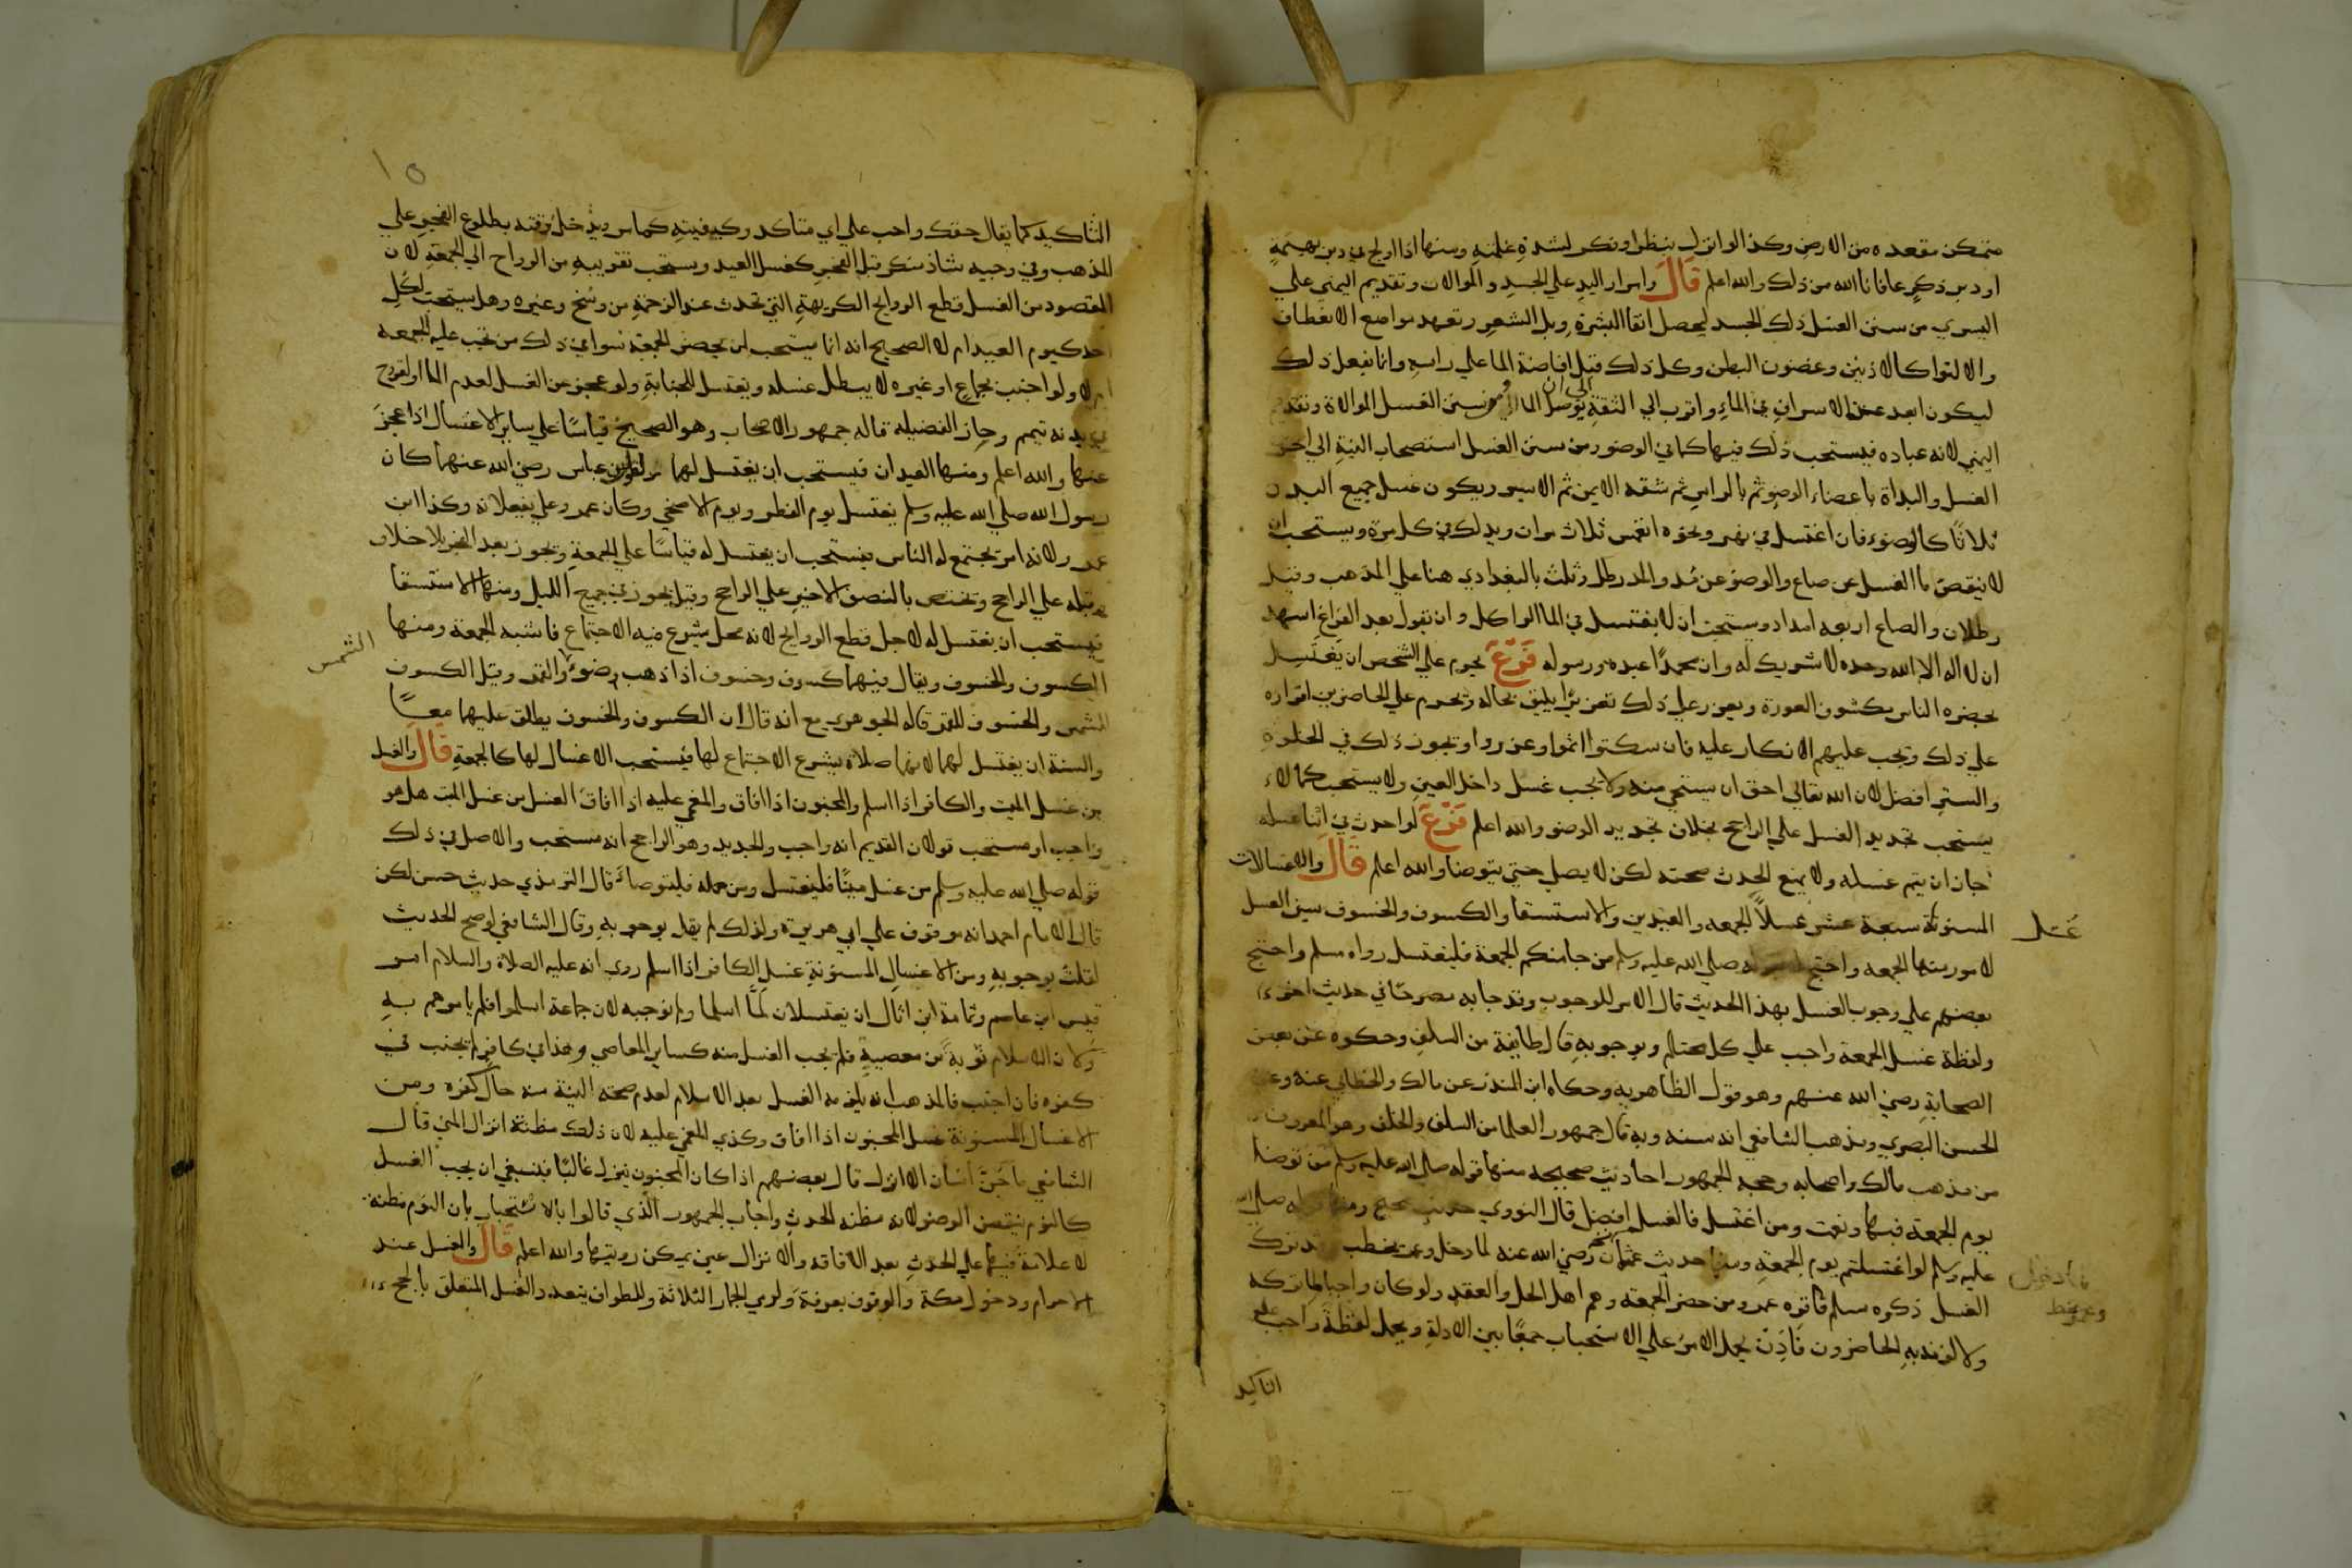 متمكن مقعده من الارض وكذا لو انزل بنظر او فكر لشدة غلمته ومنها اذا اولج في دبر بهيمة
او دبر ذكر عافانا الله من ذلك والله اعلم قال وامرار اليد علي الجسد والموالات وتقديم اليمني علي
اليسري من سنن الغسل دلك الجسد ليحصل انقا البشرة وبل الشعر وتعهد مواضع الانعطاف
والالتوا كالاذنين وغضون البطن وكل ذلك قبل افاضة الما علي راسه وانما يفعل ذلك
ليكون ابعد عن الاسراف في الماء واقرب الي الثقة بوصول الما ومن سنن الغسل الموالاة وتقديم
اليمني لانه عباده فيستحب ذلك فيها كما في الوضو ومن سنن الغسل استصحاب النية الي اخر
الغسل والبداة باعضاء الوضو ثم بالراس ثم شقه الايمن ثم الايسر ويكون غسل جميع البدن
ثلاثا كالوضوء فان اغتسل في نهر ونحوه انغمس ثلاث مرات ويدلك في كل مرة ويستحب ان
لا ينقص ما الغسل عن صاع والوضو عن مد والمد رطل وثلث بالبغدادي هنا علي المذهب وقيل
رطلان والصاع اربعه امداد ويستحب ان لا يغتسل في الما الراكد وان يقول بعد الفراغ اشهد
ان لا اله الا الله وحده لا شريك له وان محمدا عبده ورسوله فرع يحرم علي الشخص ان يغتسل
بحضره الناس مكشوف العورة ويعزر علي ذلك تعزيرا يليق بحاله ويحرم علي الحاضرين اقراره
علي ذلك ويجب عليهم الانكار عليه فان سكتوا اثموا وعزروا ويجوز ذلك في الخلوة
والستر افضل لان الله تعالي احق ان يستحي منه ولا يجب غسل داخل العين ولا يستحب كما لا
يستحب تجديد الغسل علي الراجح بخلاف تجديد الوضو والله اعلم فرع لو احدث في اثنا غسله
جاز ان يتم غسله ولا يمنع الحدث صحته لكن لا يصلي حتي يتوضا والله اعلم قال والاغتسالات
المسنونة سبعة عشر غسلا الجمعه والعيدين والاستسقا والكسوف والخسوف سنن الغسل
غسل
لامور منها الجمعه واحتج له بقوله صلي الله عليه وسلم من جا منكم الجمعة فليغتسل رواه مسلم واحتج
بعضهم علي وجوب الغسل بهذا الحديث قال الامر للوجوب وقد جا به مصرحا في حديث اخر
ولفظه غسل الجمعة واجب علي كل محتلم وبوجوبه قال طايفة من السلف وحكوه عن بعض
الصحابة رضي الله عنهم وهو قول الظاهريه وحكاه ابن المنذر عن مالك والخطابي عنه وعن
الحسن البصري ومذهب الشافعي انه سنه وبه قال جمهور العلما من السلف والخلف وهو المعروف
من مذهب مالك واصحابه وحجه الجمهور احاديث صحيحه منها قوله صلي الله عليه وسلم من توضا
يوم الجمعة فبها ونعمت ومن اغتسل فالغسل افضل قال النووي حديث صحيح ومنها قوله صلي الله
عليه وسلم لو اغتسلتم يوم الجمعة ومنها حديث عثمان رضي الله عنه لما دخل وعمر يخطب وقد ترك
لما دخل
وعمر يخط
الغسل ذكره مسلم فاقره عمر ومن حضر الجمعه وهم اهل الحل والعقد ولو كان واجبا لما تركه
ولالزمه به الحاضرون فاذن يحمل الامر علي الاستحباب جمعا بين الادلة ويحمل لفظة واجب علي
التاكيد
١٥
التاكيد كما يقال حقك واجب علي اي متاكد وكيفيته كما مر ويدخل وقته بطلوع الفجر علي
المذهب وفي وجيه شاذ منكر قبل الفجر كغسل العيد ويستحب تقريبه من الرواح الي الجمعة لان
المقصود من الغسل قطع الروايح الكريهة التي تحدث عند الزحمة من وسخ وغيره وهل يستحب لكل
احد كيوم العيد ام لا الصحيح انه انما يستحب لمن يحضر الجمعة سوا في ذلك من تجب عليه الجمعه
ام لا ولو اجنب بجماع او غيره لا يبطل غسله ويغتسل للجنابة ولو عجز عن الغسل لعدم الما او لقروح
في بدنه تيمم وحاز الفضيله قاله جمهور الاصحاب وهو الصحيح قياسا علي ساير الاغتسال اذا عجز
عنها والله اعلم ومنها العيدان فيستحب ان يغتسل لهما لقول ابن عباس رضي الله عنهما كان
رسول الله صلي الله عليه وسلم يغتسل يوم الفطر ويوم الاضحي وكان عمر وعلي يفعلانه وكذا ابن
عمر ولانه امر يجتمع له الناس فيستحب ان يغتسل له قياسا علي الجمعة ويجوز بعد الفجر بلا خلاف
وقبله علي الراجح ويختص بالنصف الاخير علي الراجح وقيل يجوز في جميع الليل ومنها الاستسقا
فيستحب ان يغتسل له لاجل قطع الروايح لانه محل يشرع فيه الاجتماع فاشبه الجمعة ومنها
الكسوف والخسوف ويقال فيهما كسوف وخسوف اذا ذهب ضوء والقمر وقيل الكسوف
الشمس
للشمس والخسوف للقمر قاله الجوهري مع انه قال ان الكسوف والخسوف يطلق عليهما معا
والسنة ان يغتسل لهما لانهما صلاة يشرع الاجتماع لها فيستحب الاغتسال لها كالجمعة قال والغسل
من غسل الميت والكافر اذا اسلم والمجنون اذا افاق والمغمي عليه اذا افاق الغسل من غسل الميت هل هو
واجب او مستحب قولان القديم انه واجب والجديد وهو الراجح انه مستحب والاصل في ذلك
قوله صلي الله عليه وسلم من غسل ميتا فليغتسل ومن حمله فليتوضا قال الترمذي حديث حسن لكن
قال الامام احمد انه موقوف علي ابي هريرة ولذلك لم يقل بوجوبه وقال الشافعي لو صح الحديث
لقلت بوجوبه ومن الاغسال المسنونة غسل الكافر اذا اسلم روي انه عليه الصلاة والسلام امر
قيس ابن عاصم وثمامة ابن اثال ان يغتسلان لما اسلما ولم نوجبه لان جماعة اسلموا فلم يامرهم به
ولان الاسلام توبة من معصية فلم يجب الغسل منه كساير المعاصي وهذا في كافر لم يجنب في
كفره فان اجنب فالمذهب انه يلزمه الغسل بعد الاسلام لعدم صحه النية منه حال كفره ومن
الاغسال المسنونة غسل المجنون اذا افاق وكذي المغمي عليه لان ذلك مظنة انزال المني قال
الشافعي ما جن انسان الا انزل قال بعضهم اذا كان المجنون ينزل غالبا فينبغي ان يجب الغسل
كالنوم ينقض الوضو لانه مظنه الحدث واجاب الجمهور الذي قالوا بالاستحباب بان النوم مظنه
لا علامة فيها علي الحدث بعد الافاقه والانزال عين يمكن رويتها والله اعلم قال والغسل عند
الاحرام ودخول مكة والوقوف بعرفة ولرمي الجمار الثلاثة وللطواف يتعدد الغسل المتعلق بالحج